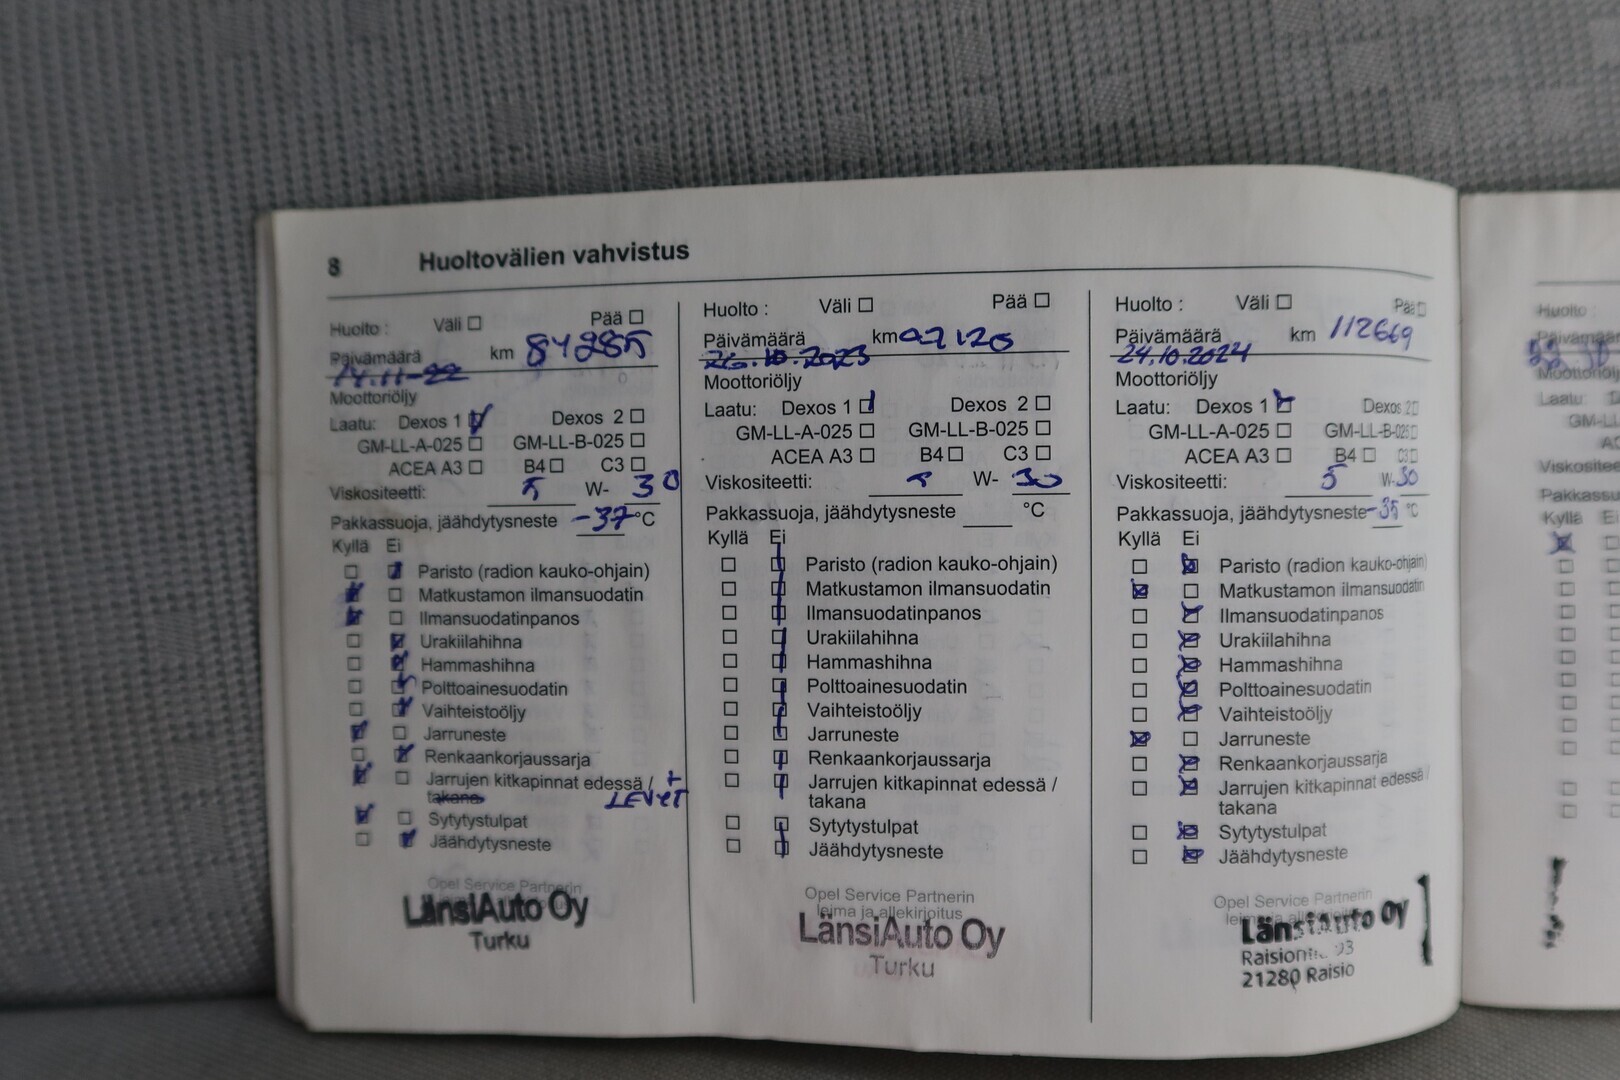 8 Huoltovälien vahvistus
Huolto : Väli Pää
Päivämäärä km 84285
14.11-22
Moottoriöljy
Laatu: Dexos 1 Dexos 2
GM-LL-A-025 GM-LL-B-025
ACEA A3 B4 C3
Viskositeetti: 5 W- 30
Pakkassuoja, jäähdytysneste -37 °C
Kyllä Ei
Paristo (radion kauko-ohjain)
Matkustamon ilmansuodatin
Ilmansuodatinpanos
Urakiilahihna
Hammashihna
Polttoainesuodatin
Vaihteistoöljy
Jarruneste
Renkaankorjaussarja
Jarrujen kitkapinnat edessä / +
takana LEVYT
Sytytystulpat
Jäähdytysneste
Opel Service Partnerin
LänsiAuto Oy
Turku
Huolto : Väli Pää
Päivämäärä km 97120
26.10.2023
Moottoriöljy
Laatu: Dexos 1 Dexos 2
GM-LL-A-025 GM-LL-B-025
ACEA A3 B4 C3
Viskositeetti: 5 W- 30
Pakkassuoja, jäähdytysneste °C
Kyllä Ei
Paristo (radion kauko-ohjain)
Matkustamon ilmansuodatin
Ilmansuodatinpanos
Urakiilahihna
Hammashihna
Polttoainesuodatin
Vaihteistoöljy
Jarruneste
Renkaankorjaussarja
Jarrujen kitkapinnat edessä /
takana
Sytytystulpat
Jäähdytysneste
Opel Service Partnerin
leima ja allekirjoitus
LänsiAuto Oy
Turku
Huolto : Väli Pää
Päivämäärä km 112669
24.10.2024
Moottoriöljy
Laatu: Dexos 1 Dexos 2
GM-LL-A-025 GM-LL-B-025
ACEA A3 B4 C3
Viskositeetti: 5 W- 30
Pakkassuoja, jäähdytysneste -35 °C
Kyllä Ei
Paristo (radion kauko-ohjain)
Matkustamon ilmansuodatin
Ilmansuodatinpanos
Urakiilahihna
Hammashihna
Polttoainesuodatin
Vaihteistoöljy
Jarruneste
Renkaankorjaussarja
Jarrujen kitkapinnat edessä /
takana
Sytytystulpat
Jäähdytysneste
Opel Service Partnerin
leima ja allekirjoitus
LänsiAuto Oy
21280 Raisio
Huolto
Laatu:
Kyllä Ei